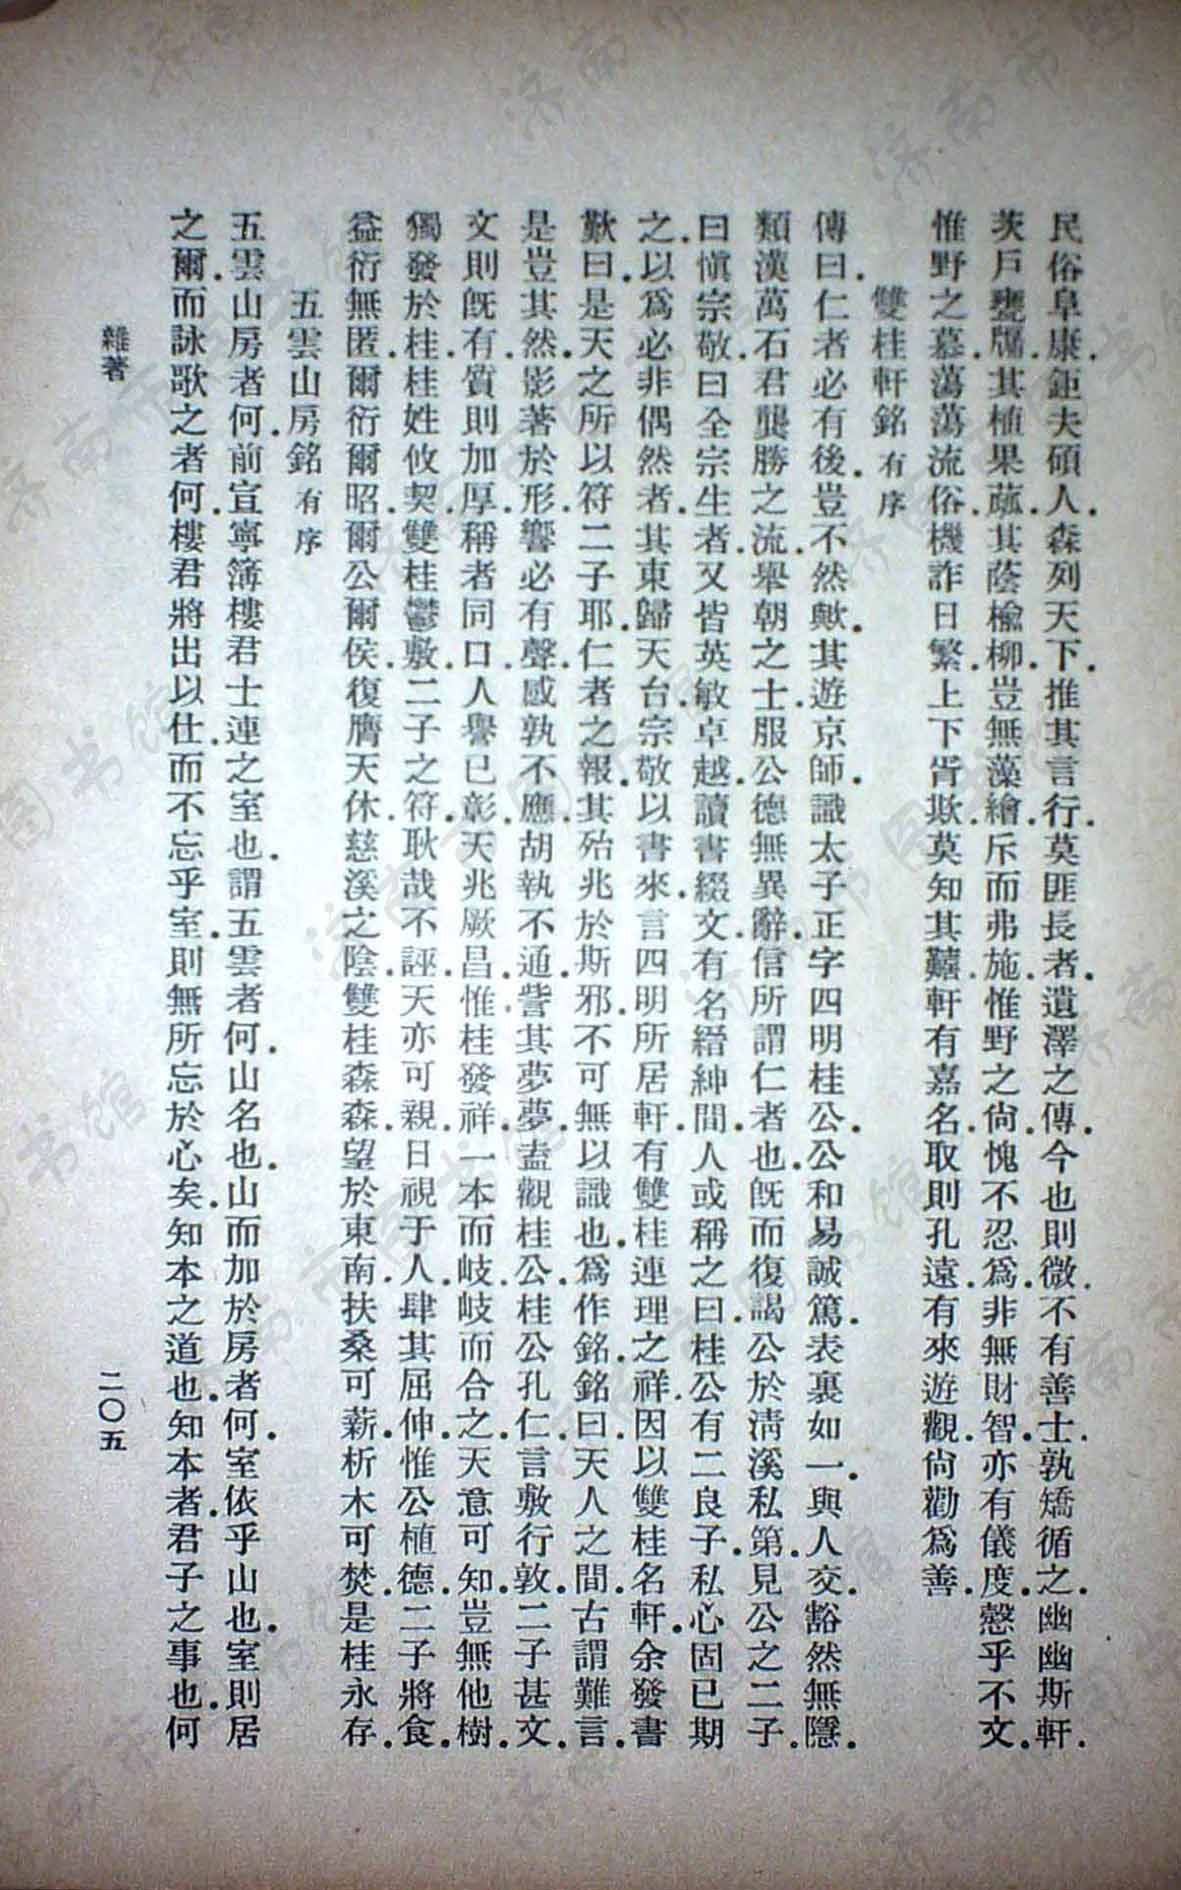 民俗阜康．鉅夫碩人．森列天下．推其言行．莫匪長者．遺澤之傳．今也則微．不有善士．孰矯循之．幽幽斯軒．
茨戶甕牖．其植果蓏．其蔭檢柳．豈無藻繪．斥而弗施．惟野之尙．愧不忍爲．非無財智．亦有儀度．慇乎不文．
惟野之慕．蕩蕩流俗．機詐日繁．上下胥欺．莫知其囏．軒有嘉名．取則孔遠．有來遊觀．尙勸爲善．
雙桂軒銘 有序
傳曰．仁者必有後．豈不然歟．其遊京師．識太子正字四明桂公．公和易誠篤．表裏如一．與人交．豁然無隱．
類漢萬石君龔勝之流．舉朝之士．服公德無異辭．信所謂仁者也．旣而復謁公於淸溪私第．見公之二子．
曰愼宗敬．曰全宗生者．又皆英敏卓越．讀書綴文．有名縉紳間．人或稱之曰．桂公有二良子．私心固已期
之．以爲必非偶然者．其東歸天台．宗敬以書來言四明所居軒．有雙桂連理之祥．因以雙桂名軒．余發書
歎曰．是天之所以符二子耶．仁者之報．其殆兆於斯邪．不可無以識也．爲作銘．銘曰．天人之間．古謂難言．
是豈其然．影著於形．響必有聲．感孰不應．胡執不通．訾其夢夢．盍觀桂公．桂公孔仁．言敷行敦．二子甚文．
文則旣有．質則加厚．稱者同口．人譽已彰．天兆厥昌．惟桂發祥．一本而岐．岐而合之．天意可知．豈無他樹．
獨發於桂．桂姓攸契．雙桂鬱敷．二子之符．耿哉不誣．天亦可親．日視于人．肆其屈伸．惟公植德．二子將食．
益衍無匿．爾衍爾昭．爾公爾侯．復膺天休．慈溪之陰．雙桂森森．望於東南．扶桑可薪．析木可焚．是桂永存．
五雲山房銘 有序
五雲山房者何．前宣寧簿樓君士連之室也．謂五雲者何．山名也．山而加於房者何．室依乎山也．室則居
之爾．而詠歌之者何．樓君將出以仕．而不忘乎室．則無所忘於心矣．知本之道也．知本者．君子之事也．何
雜著
二〇五